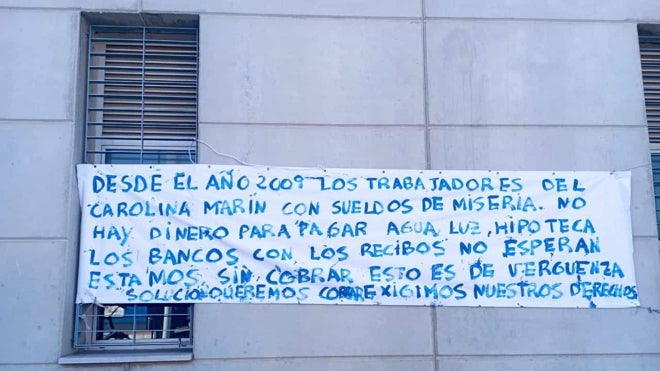 DESDE EL AÑO 2009 LOS TRABAJADORES DEL
CAROLINA MARIN CON SUELDOS DE MISERIA. NO
HAY DINERO PARA PAGAR AGUA LUZ, HIPOTECA
LOS BANCOS CON LOS RECIBOS NO ESPERAN
ESTAMOS SIN COBRAR ESTO ES DE VERGUENZA
SOLUCION QUEREMOS COBRAR EXIGIMOS NUESTROS DERECHOS